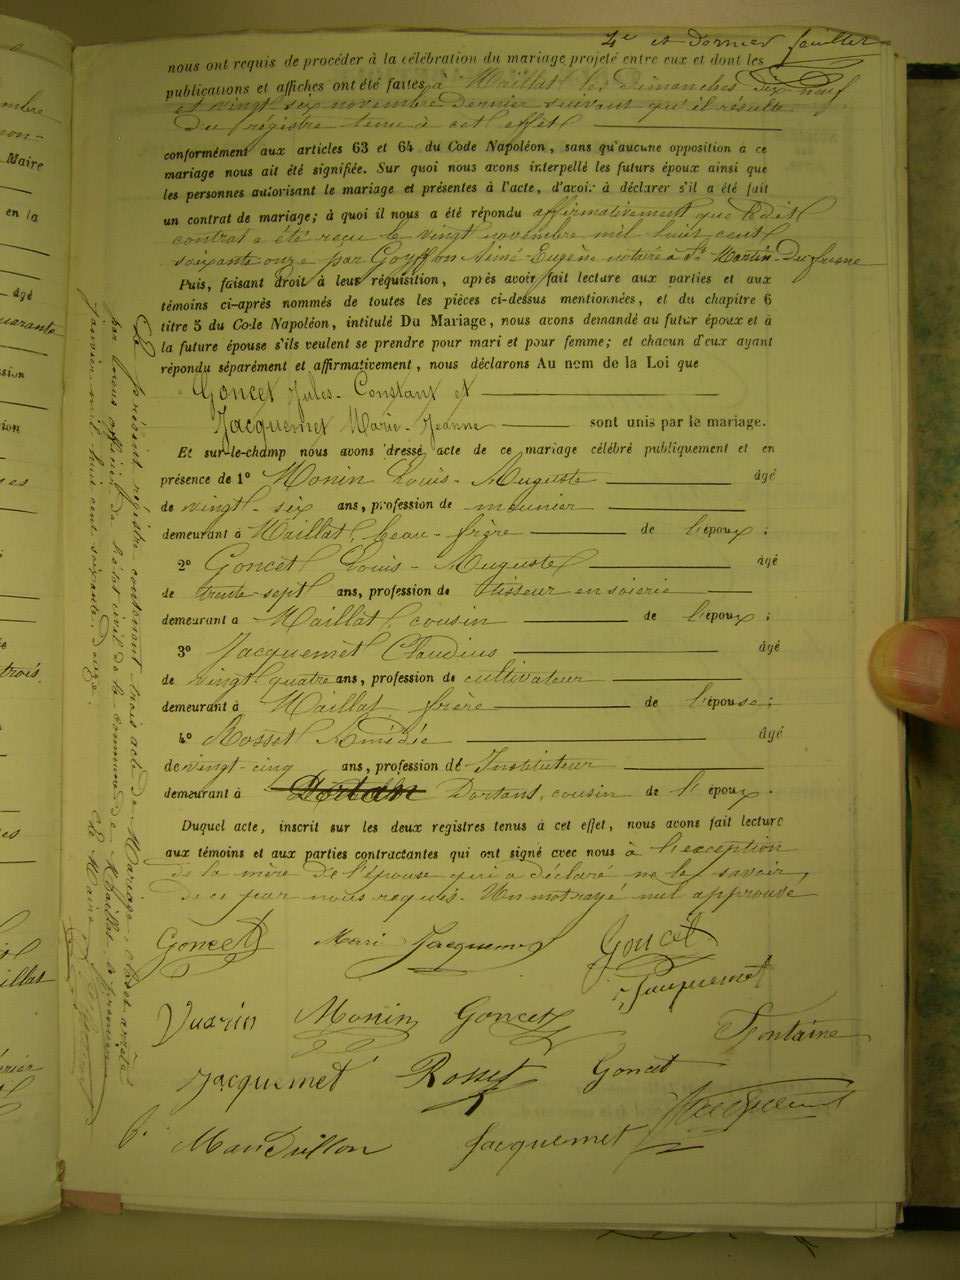 4e et Dernier feuillet
nous ont requis de procéder à la célébration du mariage projeté entre eux et dont les
publications et affiches ont été faites à Maillat les dimanches dix neuf
et vingt six novembre dernier suivant qu'il résulte
du régistre tenu à cet effet
conformément aux articles 63 et 64 du Code Napoléon, sans qu'aucune opposition à ce
mariage nous ait été signifiée. Sur quoi nous avons interpellé les futurs époux ainsi que
les personnes autorisant le mariage et présentes à l'acte, d'avoir à déclarer s'il a été fait
un contrat de mariage; à quoi il nous a été répondu affirmativement que ledit
contrat a été reçu le vingt novembre mil huit cent
soixante onze par Goyffon Aimé-Eugène notaire à St Martin-du-fresne
Puis, faisant droit à leur réquisition, après avoir fait lecture aux parties et aux
témoins ci-après nommés de toutes les pièces ci-dessus mentionnées, et du chapitre 6
titre 5 du Code Napoléon, intitulé Du Mariage, nous avons demandé au futur époux et à
la future épouse s'ils veulent se prendre pour mari et pour femme; et chacun d'eux ayant
répondu séparément et affirmativement, nous déclarons Au nom de la Loi que
Goncet Jules-Constant et
Jacquemet Marie-Jeanne sont unis par le mariage.
Et sur-le-champ nous avons dressé acte de ce mariage célébré publiquement et en
présence de 1° Monin Louis-Auguste âgé
de vingt-six ans, profession de meunier
demeurant à Maillat, beau-frère de l'époux;
2° Goncet Louis-Auguste âgé
de trente sept ans, profession de tisseur en soierie
demeurant à Maillat, cousin de l'époux;
3° Jacquemet Claudius âgé
de vingt quatre ans, profession de cultivateur
demeurant à Maillat frère de l'épouse;
4° Rosset Amédée âgé
de vingt-cinq ans, profession de Instituteur
demeurant à Dortan Dortans, cousin de l'époux.
Duquel acte, inscrit sur les deux registres tenus à cet effet, nous avons fait lecture
aux témoins et aux parties contractantes qui ont signé avec nous à l'exception
de la mère de l'épouse qui a déclaré ne le savoir,
de ce par nous requis. Un mot rayé nul approuvé
Goncet Marri Jacquemet Goncet
Jacquemet
Vuarin Monin Goncet Fontaine
Jacquemet Rosset Goncet
Mandrillon Jacquemet
Le présent régistre contenant trois acte de Mariage a été clos et arrêté
par nous officier de l'état civil de la commune de Maillat le premier
janvier mil huit cent soixante douze.
Le Maire